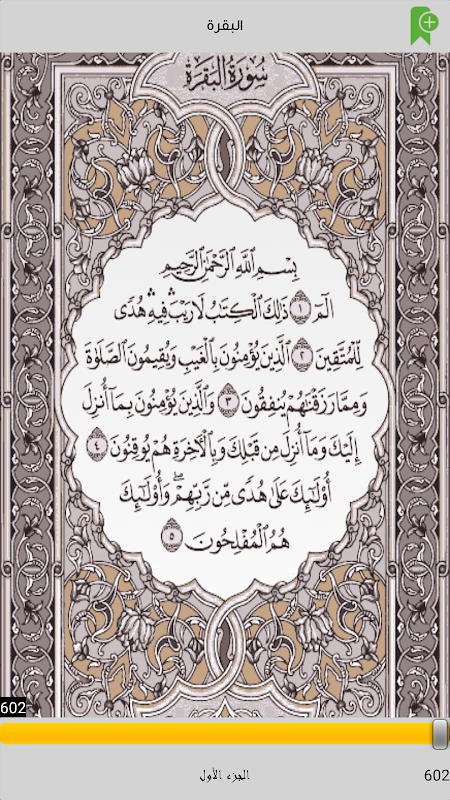 البقرة
سُورَةُ الْبَقَرَةِ
بِسْمِ ٱللَّهِ ٱلرَّحْمَٰنِ ٱلرَّحِيمِ
الٓمٓ ١ ذَٰلِكَ ٱلْكِتَٰبُ لَا رَيْبَ ۛ فِيهِ ۛ هُدًى
لِّلْمُتَّقِينَ ٢ ٱلَّذِينَ يُؤْمِنُونَ بِٱلْغَيْبِ وَيُقِيمُونَ ٱلصَّلَوٰةَ
وَمِمَّا رَزَقْنَٰهُمْ يُنفِقُونَ ٣ وَٱلَّذِينَ يُؤْمِنُونَ بِمَآ أُنزِلَ
إِلَيْكَ وَمَآ أُنزِلَ مِن قَبْلِكَ وَبِٱلْءَاخِرَةِ هُمْ يُوقِنُونَ ٤
أُو۟لَٰٓئِكَ عَلَىٰ هُدًى مِّن رَّبِّهِمْ ۖ وَأُو۟لَٰٓئِكَ
هُمُ ٱلْمُفْلِحُونَ ٥
602
الجزء الأول
602